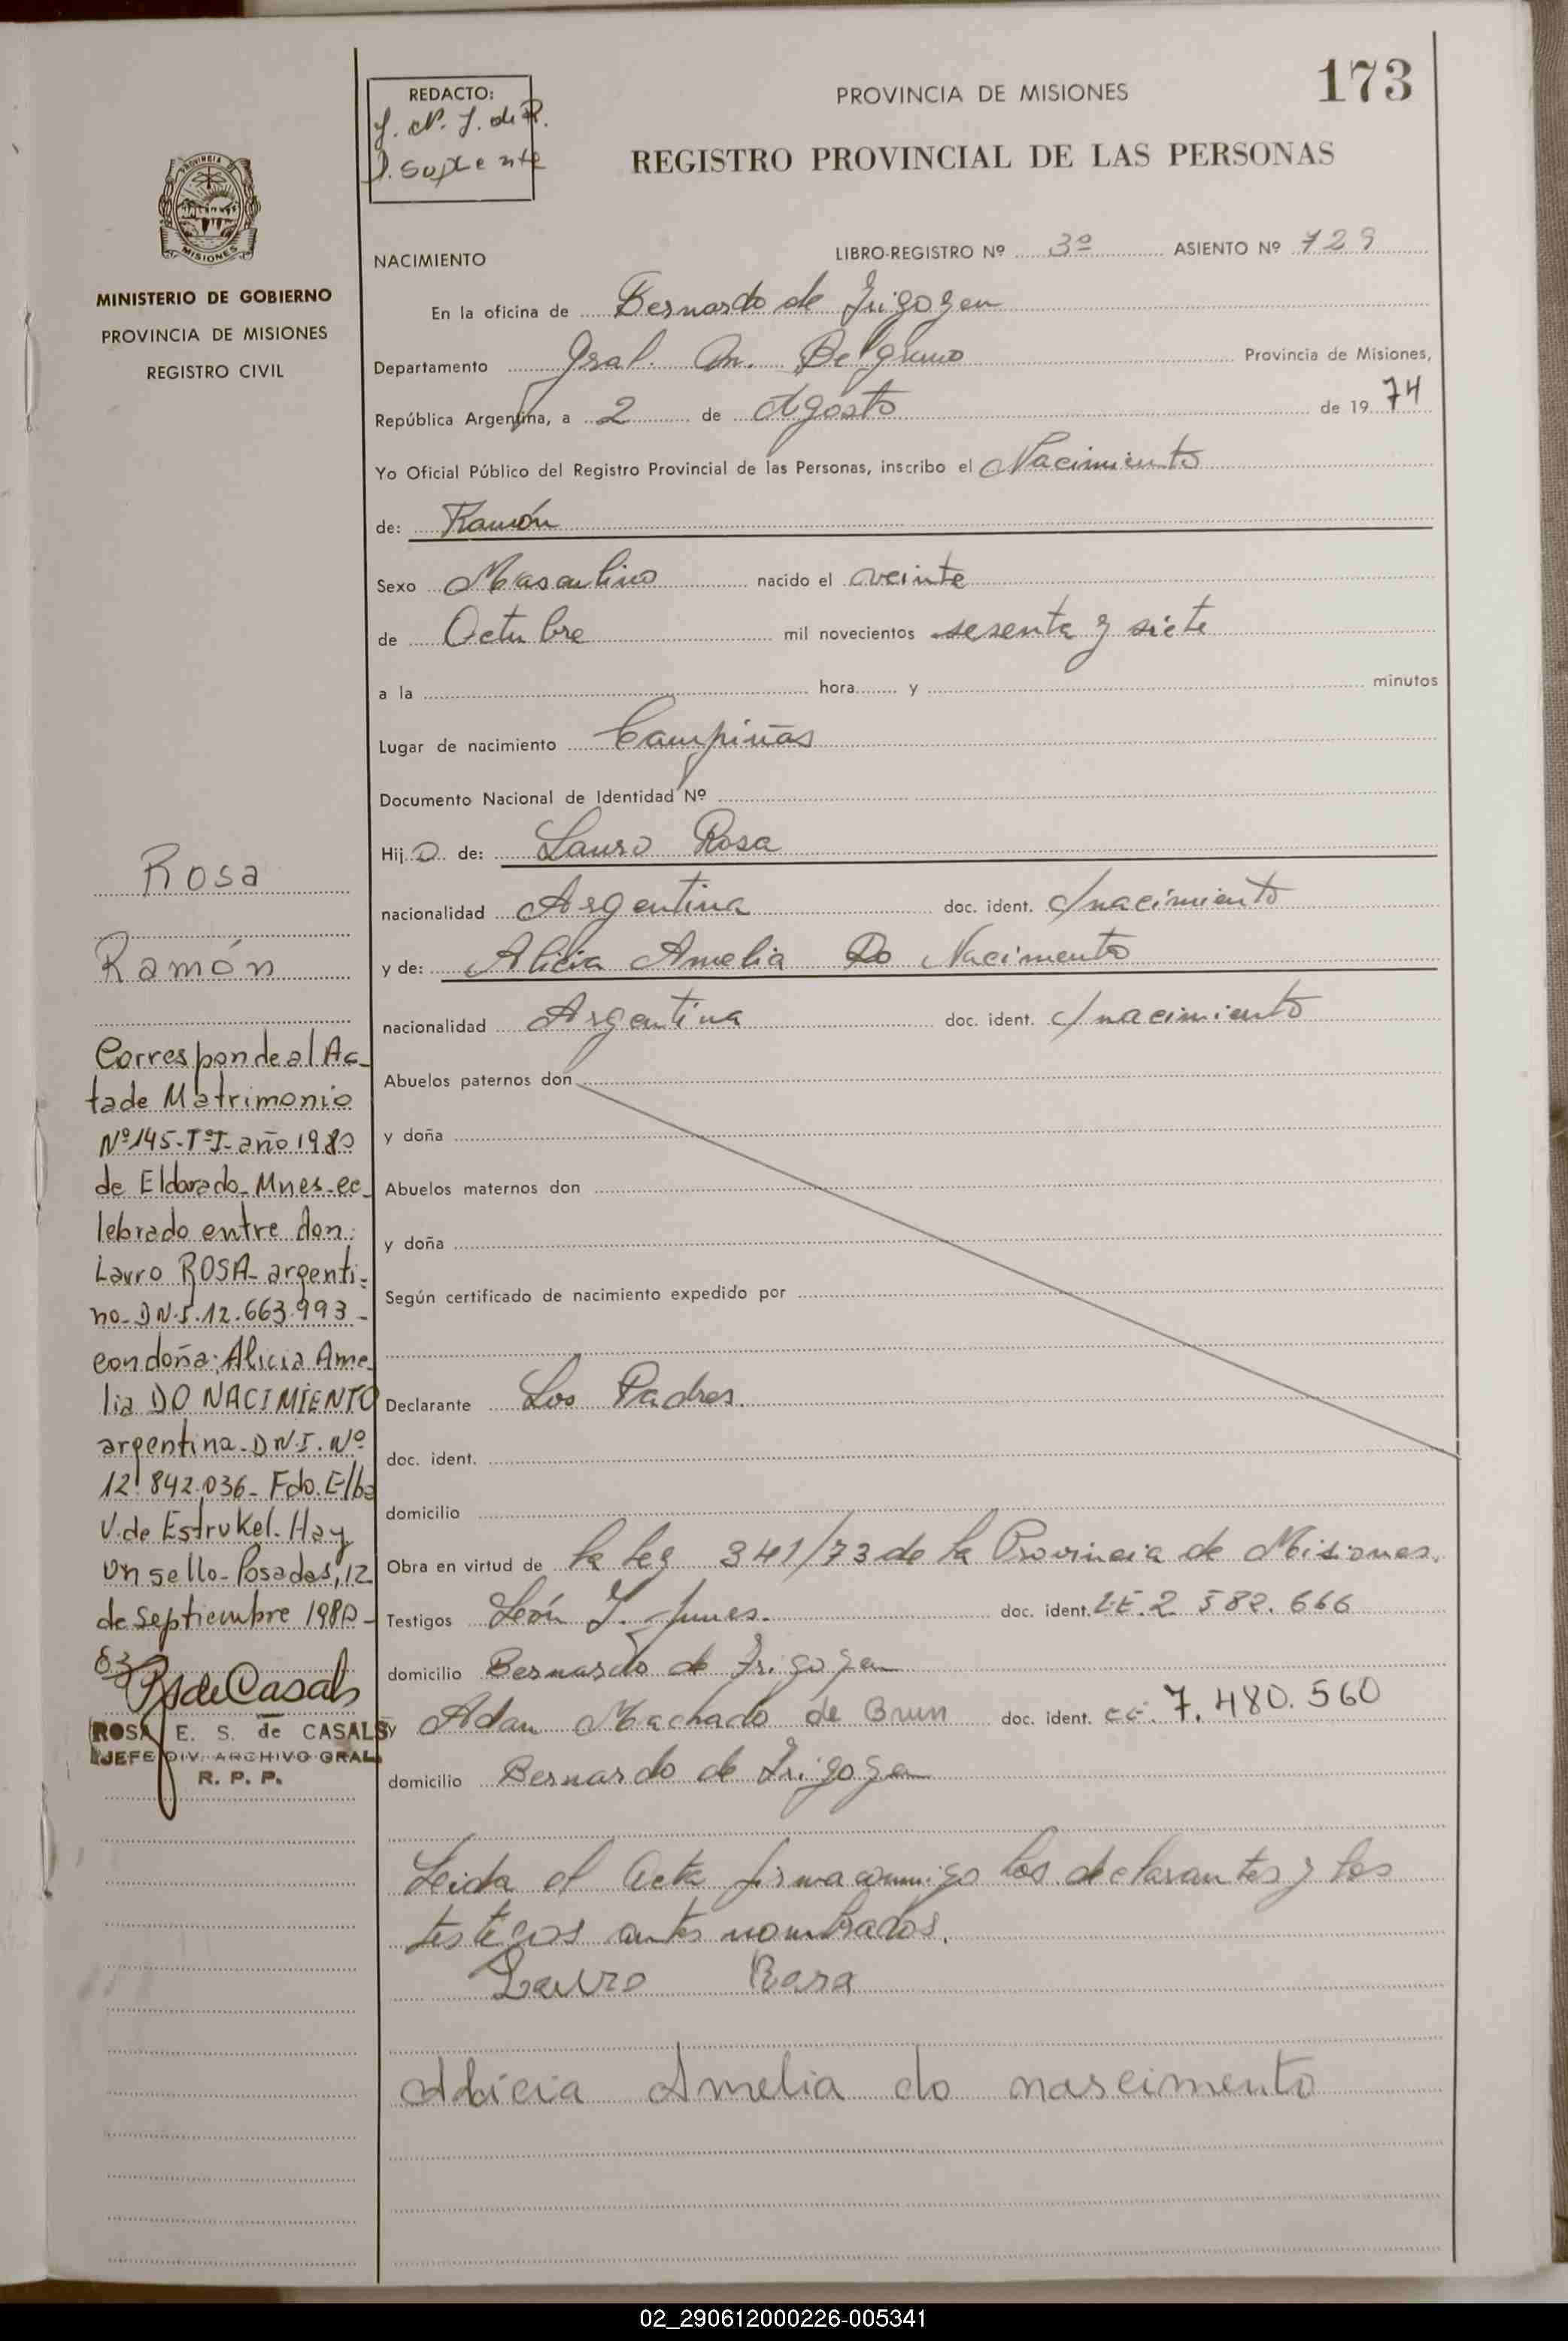 173
REDACTO:
Suplente
PROVINCIA DE MISIONES
REGISTRO PROVINCIAL DE LAS PERSONAS
PROVINCIA
MISIONES
MINISTERIO DE GOBIERNO
PROVINCIA DE MISIONES
REGISTRO CIVIL
NACIMIENTO LIBRO-REGISTRO Nº 3º ASIENTO Nº 729
En la oficina de Bernardo de Irigoyen
Departamento Gral. M. Belgrano Provincia de Misiones,
República Argentina, a 2 de Agosto de 19 74
Yo Oficial Público del Registro Provincial de las Personas, inscribo el Nacimiento
de: Ramón
Sexo Masculino nacido el veinte
de Octubre mil novecientos sesenta y siete
a la hora y minutos
Lugar de nacimiento Campiñas
Documento Nacional de Identidad Nº
Hij o de: Lauro Rosa
nacionalidad Argentina doc. ident. c/nacimiento
y de: Alicia Amelia Do Nacimento
nacionalidad Argentina doc. ident. c/nacimiento
Abuelos paternos don
y doña
Abuelos maternos don
y doña
Según certificado de nacimiento expedido por
Declarante Los Padres.
doc. ident.
domicilio
Obra en virtud de la ley 341/73 de la Provincia de Misiones.
Testigos León doc. ident. L.E. 2.582.666
domicilio Bernardo de Irigoyen
y Adan Machado de Brun doc. ident. 7.480.560
domicilio Bernardo de Irigoyen
Leida el Acta firma conmigo los declarantes y los
testigos antes nombrados.
Lauro Rosa
Alicia Amelia do nascimento
Rosa
Ramón
Corresponde al Ac-
ta de Matrimonio
Nº 145-Tº I-año 1980
de Eldorado-Mnes-ce-
lebrado entre don:
Lauro ROSA-argenti-
no-D.N.I.12.663.993-
con doña: Alicia Ame
lia DO NACIMIENTO
argentina-D.N.I. Nº
12.842.036-Fdo. Elba
V. de Estrukel. Hay
un sello-Posadas, 12
de septiembre 1980-
RSdeCasals
ROSA E. S. de CASALS
JEFE DIV. ARCHIVO GRAL.
R. P. P.
02_290612000226-005341